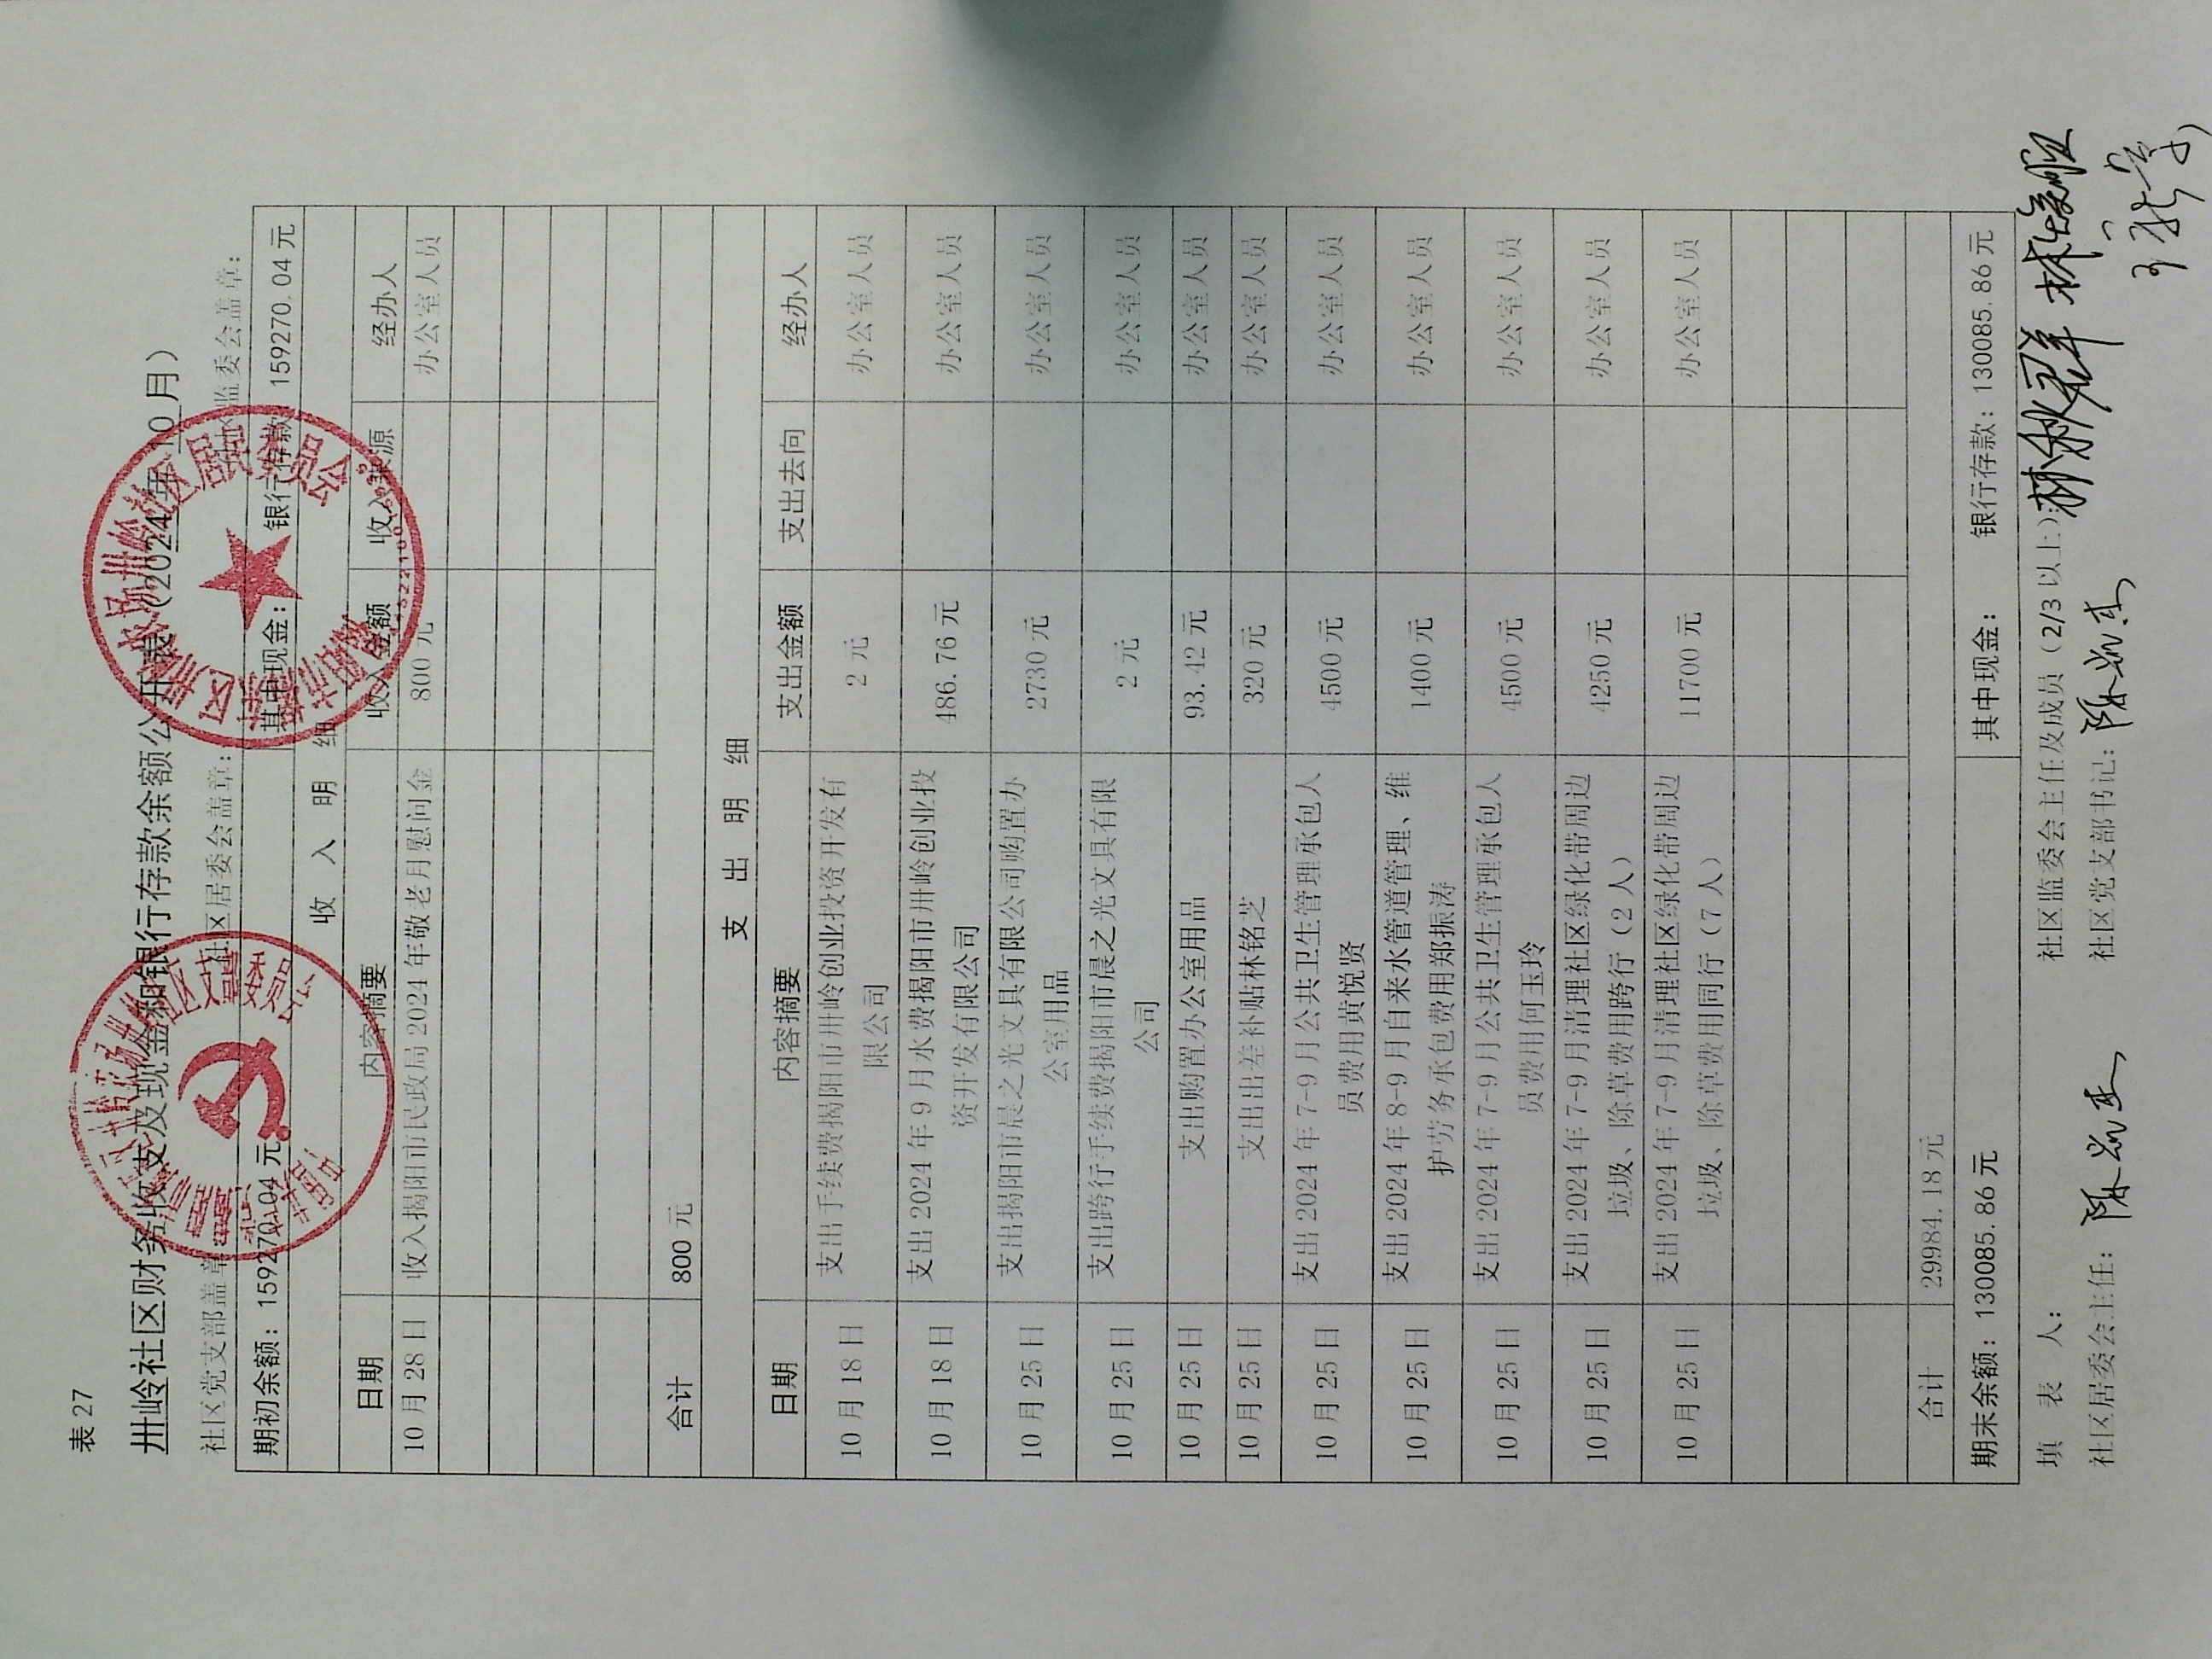 表 27
卅岭社区财务收支及现金和银行存款余额公开表（2024 年 10 月）
社区党支部盖章 社区居委会盖章： 监委会盖章：
期初余额：159270.04 元 其中现金： 银行存款：159270.04 元
收 入 明 细
日期 内容摘要 收入金额 收入来源 经办人
10 月 28 日 收入揭阳市民政局 2024 年敬老月慰问金 800 元 办公室人员
合计 800 元
支 出 明 细
日期 内容摘要 支出金额 支出去向 经办人
10 月 18 日 支出手续费揭阳市卅岭创业投资开发有 2 元 办公室人员
限公司
10 月 18 日 支出 2024 年 9 月水费揭阳市卅岭创业投 486.76 元 办公室人员
资开发有限公司
10 月 25 日 支出揭阳市晨之光文具有限公司购置办 2730 元 办公室人员
公室用品
10 月 25 日 支出跨行手续费揭阳市晨之光文具有限 2 元 办公室人员
公司
10 月 25 日 支出购置办公室用品 93.42 元 办公室人员
10 月 25 日 支出出差补贴林铭芝 320 元 办公室人员
10 月 25 日 支出 2024 年 7-9 月公共卫生管理承包人 4500 元 办公室人员
员费用黄悦贤
10 月 25 日 支出 2024 年 8-9 月自来水管道管理、维 1400 元 办公室人员
护劳务承包费用郑振涛
10 月 25 日 支出 2024 年 7-9 月公共卫生管理承包人 4500 元 办公室人员
员费用何玉玲
10 月 25 日 支出 2024 年 7-9 月清理社区绿化带周边 4250 元 办公室人员
垃圾、除草费用跨行（2 人）
10 月 25 日 支出 2024 年 7-9 月清理社区绿化带周边 11700 元 办公室人员
垃圾、除草费用同行（7 人）
合计 29984.18 元
期末余额：130085.86 元 其中现金： 银行存款：130085.86 元
填 表 人： 社区监委会主任及成员（2/3 以上）：
社区居委会主任： 社区党支部书记：